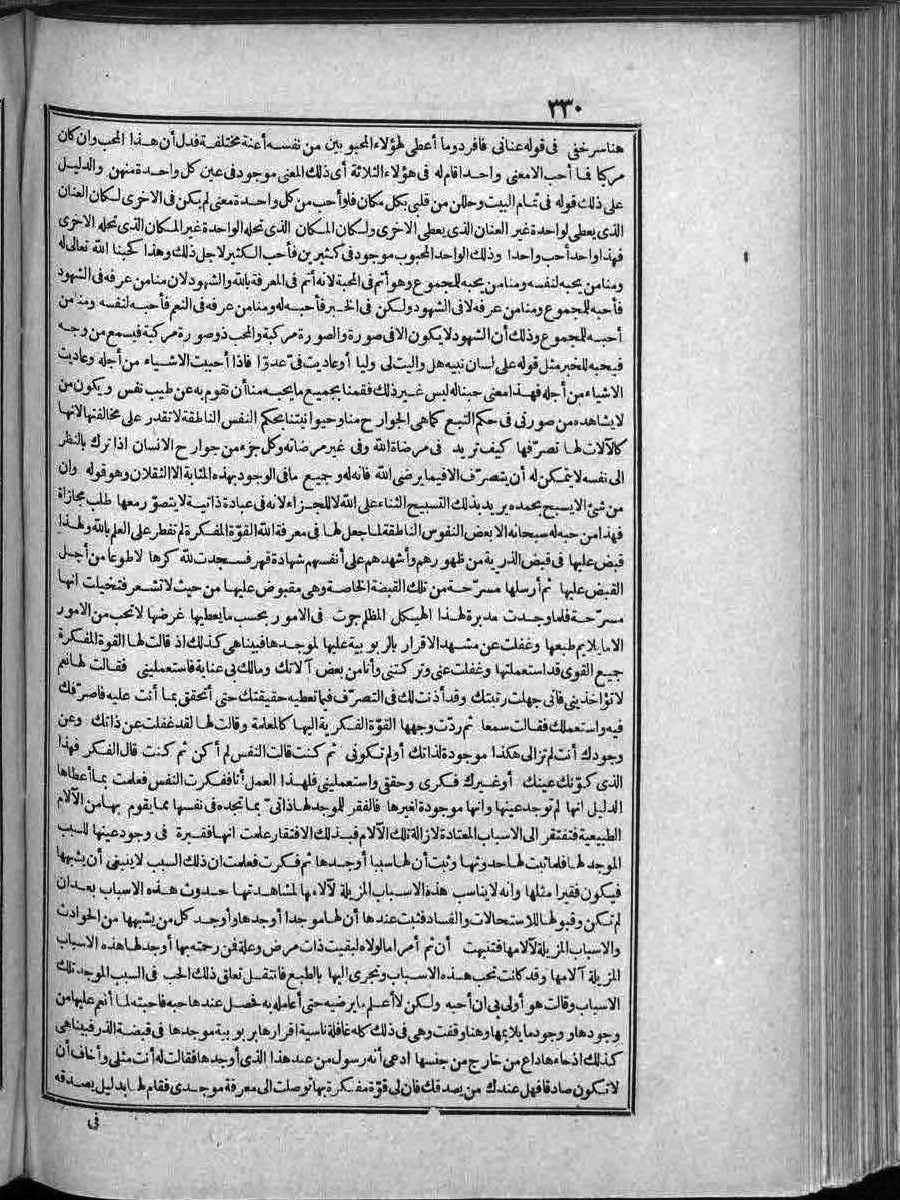 ٣٣٠
هنا سر خفى فى قوله عنانى فافرد وما أعطى لهؤلاء المحبوبين من نفسه أعنة مختلفة فدل أن هذا المحب وان كان
مركبا فما أحب الا معنى واحدا قام له فى هؤلاء الثلاثة أى ذلك المعنى موجود فى عين كل واحدة منهن والدليل
على ذلك قوله فى تمام البيت وحللن من قلبى بكل مكان فلو أحب من كل واحدة معنى لم يكن فى الاخرى لكان العنان
الذى يعطى لواحدة غير العنان الذى يعطى الاخرى ولكان المكان الذى تحله الواحدة غير المكان الذى تحله الاخرى
فهذا واحد أحب واحدا وذلك الواحد المحبوب موجود فى كثيرين فأحب الكثير لاجل ذلك وهذا كحبنا الله تعالى له
ومنا من يحبه لنفسه ومنا من يحبه للمجموع وهو أتم فى المحبة لانه أتم فى المعرفة بالله والشهود لان منا من عرفه فى الشهود
فأحبه للمجموع ومنا من عرفه لا فى الشهود ولكن فى الخبر فأحبه له ومنا من عرفه فى النعم فأحبه لنفسه ومنا من
أحبه للمجموع وذلك أن الشهود لا يكون الا فى صورة والصورة مركبة والمحب ذو صورة مركبة فيسمع من وجه
فيحبه للخبر مثل قوله على لسان نبيه هل واليت لى وليا أو عاديت فىّ عدوّا فاذا أحببت الاشياء من أجله وعاديت
الاشياء من أجله فهذا معنى حبنا له ليس غير ذلك فقمنا بجميع ما يحبه منا أن نقوم به عن طيب نفس ويكون من
لا يشاهده من صورتى فى حكم التبع كما هى الجوارح منا وحيوانيتنا بحكم النفس الناطقة لا تقدر على مخالفتها لانها
كالآلات لها تصرّفها كيف تريد فى مرضاة الله وفى غير مرضاته وكل جزء من جوارح الانسان اذا ترك بالنظر
الى نفسه لا يتمكن له أن يتصرّف الا فيما يرضى الله فانه له وجميع ما فى الوجود بهذه المثابة الا الثقلان وهو قوله وان
من شئ الا يسبح بحمده يريد بذلك التسبيح الثناء على الله لا للجزاء لانه فى عبادة ذاتية لا يتصوّر معها طلب مجازاة
فهذا من حبه له سبحانه الا بعض النفوس الناطقة لما جعل لها فى معرفة الله القوّة المفكرة لم تفطر على العلم بالله ولهذا
قبض عليها فى قبض الذرية من ظهورهم وأشهدهم على أنفسهم شهادة قهر فسجدت لله كرها لا طوعا من أجل
القبض عليها ثم أرسلها مسرّحة من تلك القبضة الخاصة وهى مقبوض عليها من حيث لا تشعر فتخيلت انها
مسرّحة فلما وجدت مدبرة لهذا الهيكل المظلم جرت فى الامور بحسب ما يعطيها غرضها لا تحب من الامور
الا ما يلايم طبعها وغفلت عن مشهد الاقرار بالربوبية عليها لموجدها فبينا هى كذلك اذ قالت لها القوة المفكرة
جميع القوى قد استعملتها وغفلت عنى وتركتنى وأنا من بعض آلاتك ومالك بى عناية فاستعملينى فقالت لها نعم
لا تؤاخذينى فانى جهلت رتبتك وقد أذنت لك فى التصرّف فيما تعطيه حقيقتك حتى أتحقق بما أنت عليه فاصرّفك
فيه واستعملك فقالت سمعا ثم ردّت وجهها القوّة الفكرية اليها كالمعلمة وقالت لها لقد غفلت عن ذاتك وعن
وجودك أنت لم تزالى هكذا موجودة لذاتك أو لم تكونى ثم كنت قالت النفس لم أكن ثم كنت قال الفكر فهذا
الذى كوّنك عينك أو غيرك فكرى وحققى واستعملينى فلهذا العمل أنا ففكرت النفس فعلمت بما أعطاها
الدليل انها لم توجد عينها وانها موجودة لغيرها فالفقر للموجد لها ذاتىّ بما تجده فى نفسها مما يقوم بها من الآلام
الطبيعية فتفتقر الى الاسباب المعتادة لازالة تلك الآلام فبذلك الافتقار علمت انها فقيرة فى وجود عينها للسبب
الموجد لها فلما ثبت لها حدوثها وثبت أن لها سببا أوجدها ثم فكرت فعلمت ان ذلك السبب لا ينبغى أن يشبهها
فيكون فقيرا مثلها وانه لا يناسب هذه الاسباب المزيلة لآلامها لمشاهدتها حدوث هذه الاسباب بعد ان
لم تكن وقبولها للاستحالات والفساد فثبت عندها أن لها موجدا أوجدها وأوجد كل من يشبهها من الحوادث
والاسباب المزيلة لآلامها فتنبهت أن ثم أمرا ما لولاه لبقيت ذات مرض وعلة فمن رحمته بها أوجد لها هذه الاسباب
المزيلة آلامها وقد كانت تحب هذه الاسباب وتجرى اليها بالطبع فانتقل تعلق ذلك الحب فى السبب الموجد تلك
الاسباب وقالت هو أولى بى ان أحبه ولكن لا أعلم ما يرضيه حتى أعامله به فحصل عندها حبه فأحبته لما أنعم عليها من
وجودها ووجود ما يلايمها وهنا وقفت وهى فى ذلك كله غافلة ناسية اقرارها بربوبية موجدها فى قبضة الذر فبينا هى
كذلك اذ جاءها داع من خارج من جنسها ادعى أنه رسول من عند هذا الذى أوجدها فقالت له أنت مثلى وأخاف أن
لا تكون صادقا فهل عندك من يصدقك فان لى قوّة مفكرة بها توصلت الى معرفة موجدى فقام لها بدليل يصدقه
فى